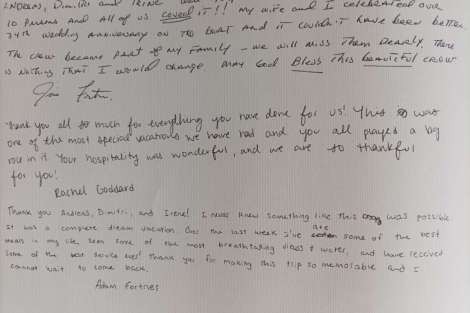 Andreas, Dimitri and Irene
10 Pilkens and all of us loved it!! My wife and I celebrated our
34th wedding anniversary on the boat and it couldn't have been better.
The crew became part of my family - we will miss them dearly. There
is nothing that I would change. May God Bless this beautiful crew
Thank you all so much for everything you have done for us! This was
one of the most special vacations we have had and you all played a big
role in it. Your hospitality was wonderful, and we are so thankful
for you!
Rachel Goddard
Thank you Andreas, Dimitri, and Irene! I never knew something like this was possible.
It was a complete dream vacation. Over the last week I've ate some of the best
meals in my life, seen some of the most breathtaking views & water, and have received
some of the best service ever! Thank you for making this trip so memorable and I
cannot wait to come back.
Adam Fortner